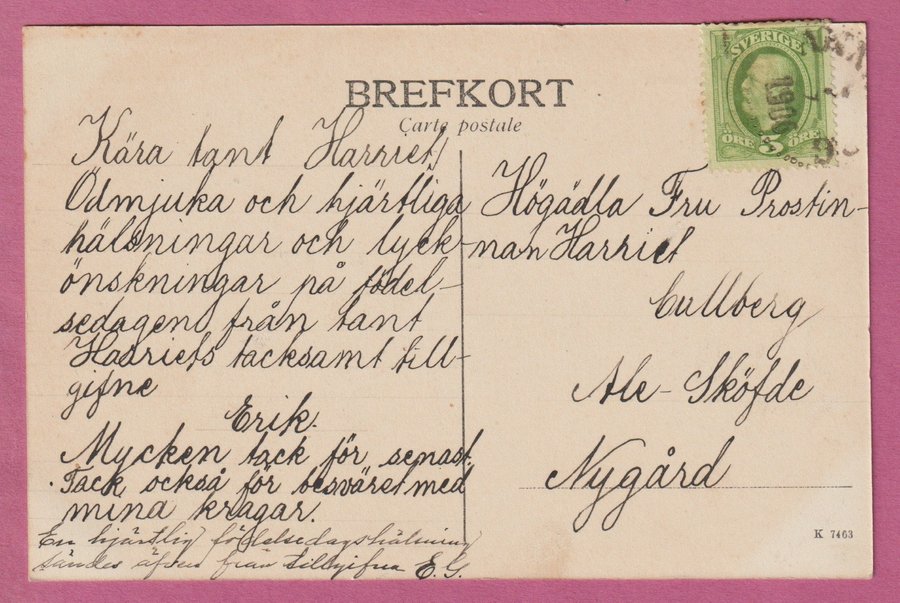 BREFKORT
Carte postale
Kära tant Harriet!
Ödmjuka och hjärtliga
hälsningar och lyck-
önskningar på födel-
sedagen från tant
Harriets tacksamt till-
gifne
Erik.
Mycken tack för senast.
Tack också för besväret med
mina kragar.
En hjärtlig födelsedagshälsning
sändes äfven från tillgifna E. G.
SVERIGE
5
ÖRE ÖRE
Högädla Fru Prostin-
nan Harriet
Cullberg
Ale-Sköfde
Nygård
K 7463